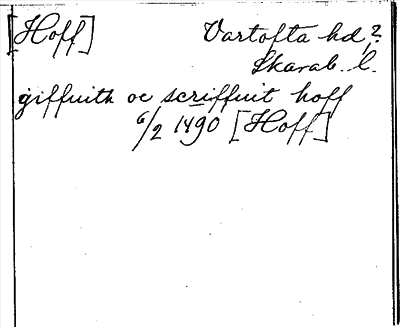 [Hoff] Vartofta hd?
Skarab. l.
giffuith oc scriffuit hoff
6/2 1490 [Hoff]